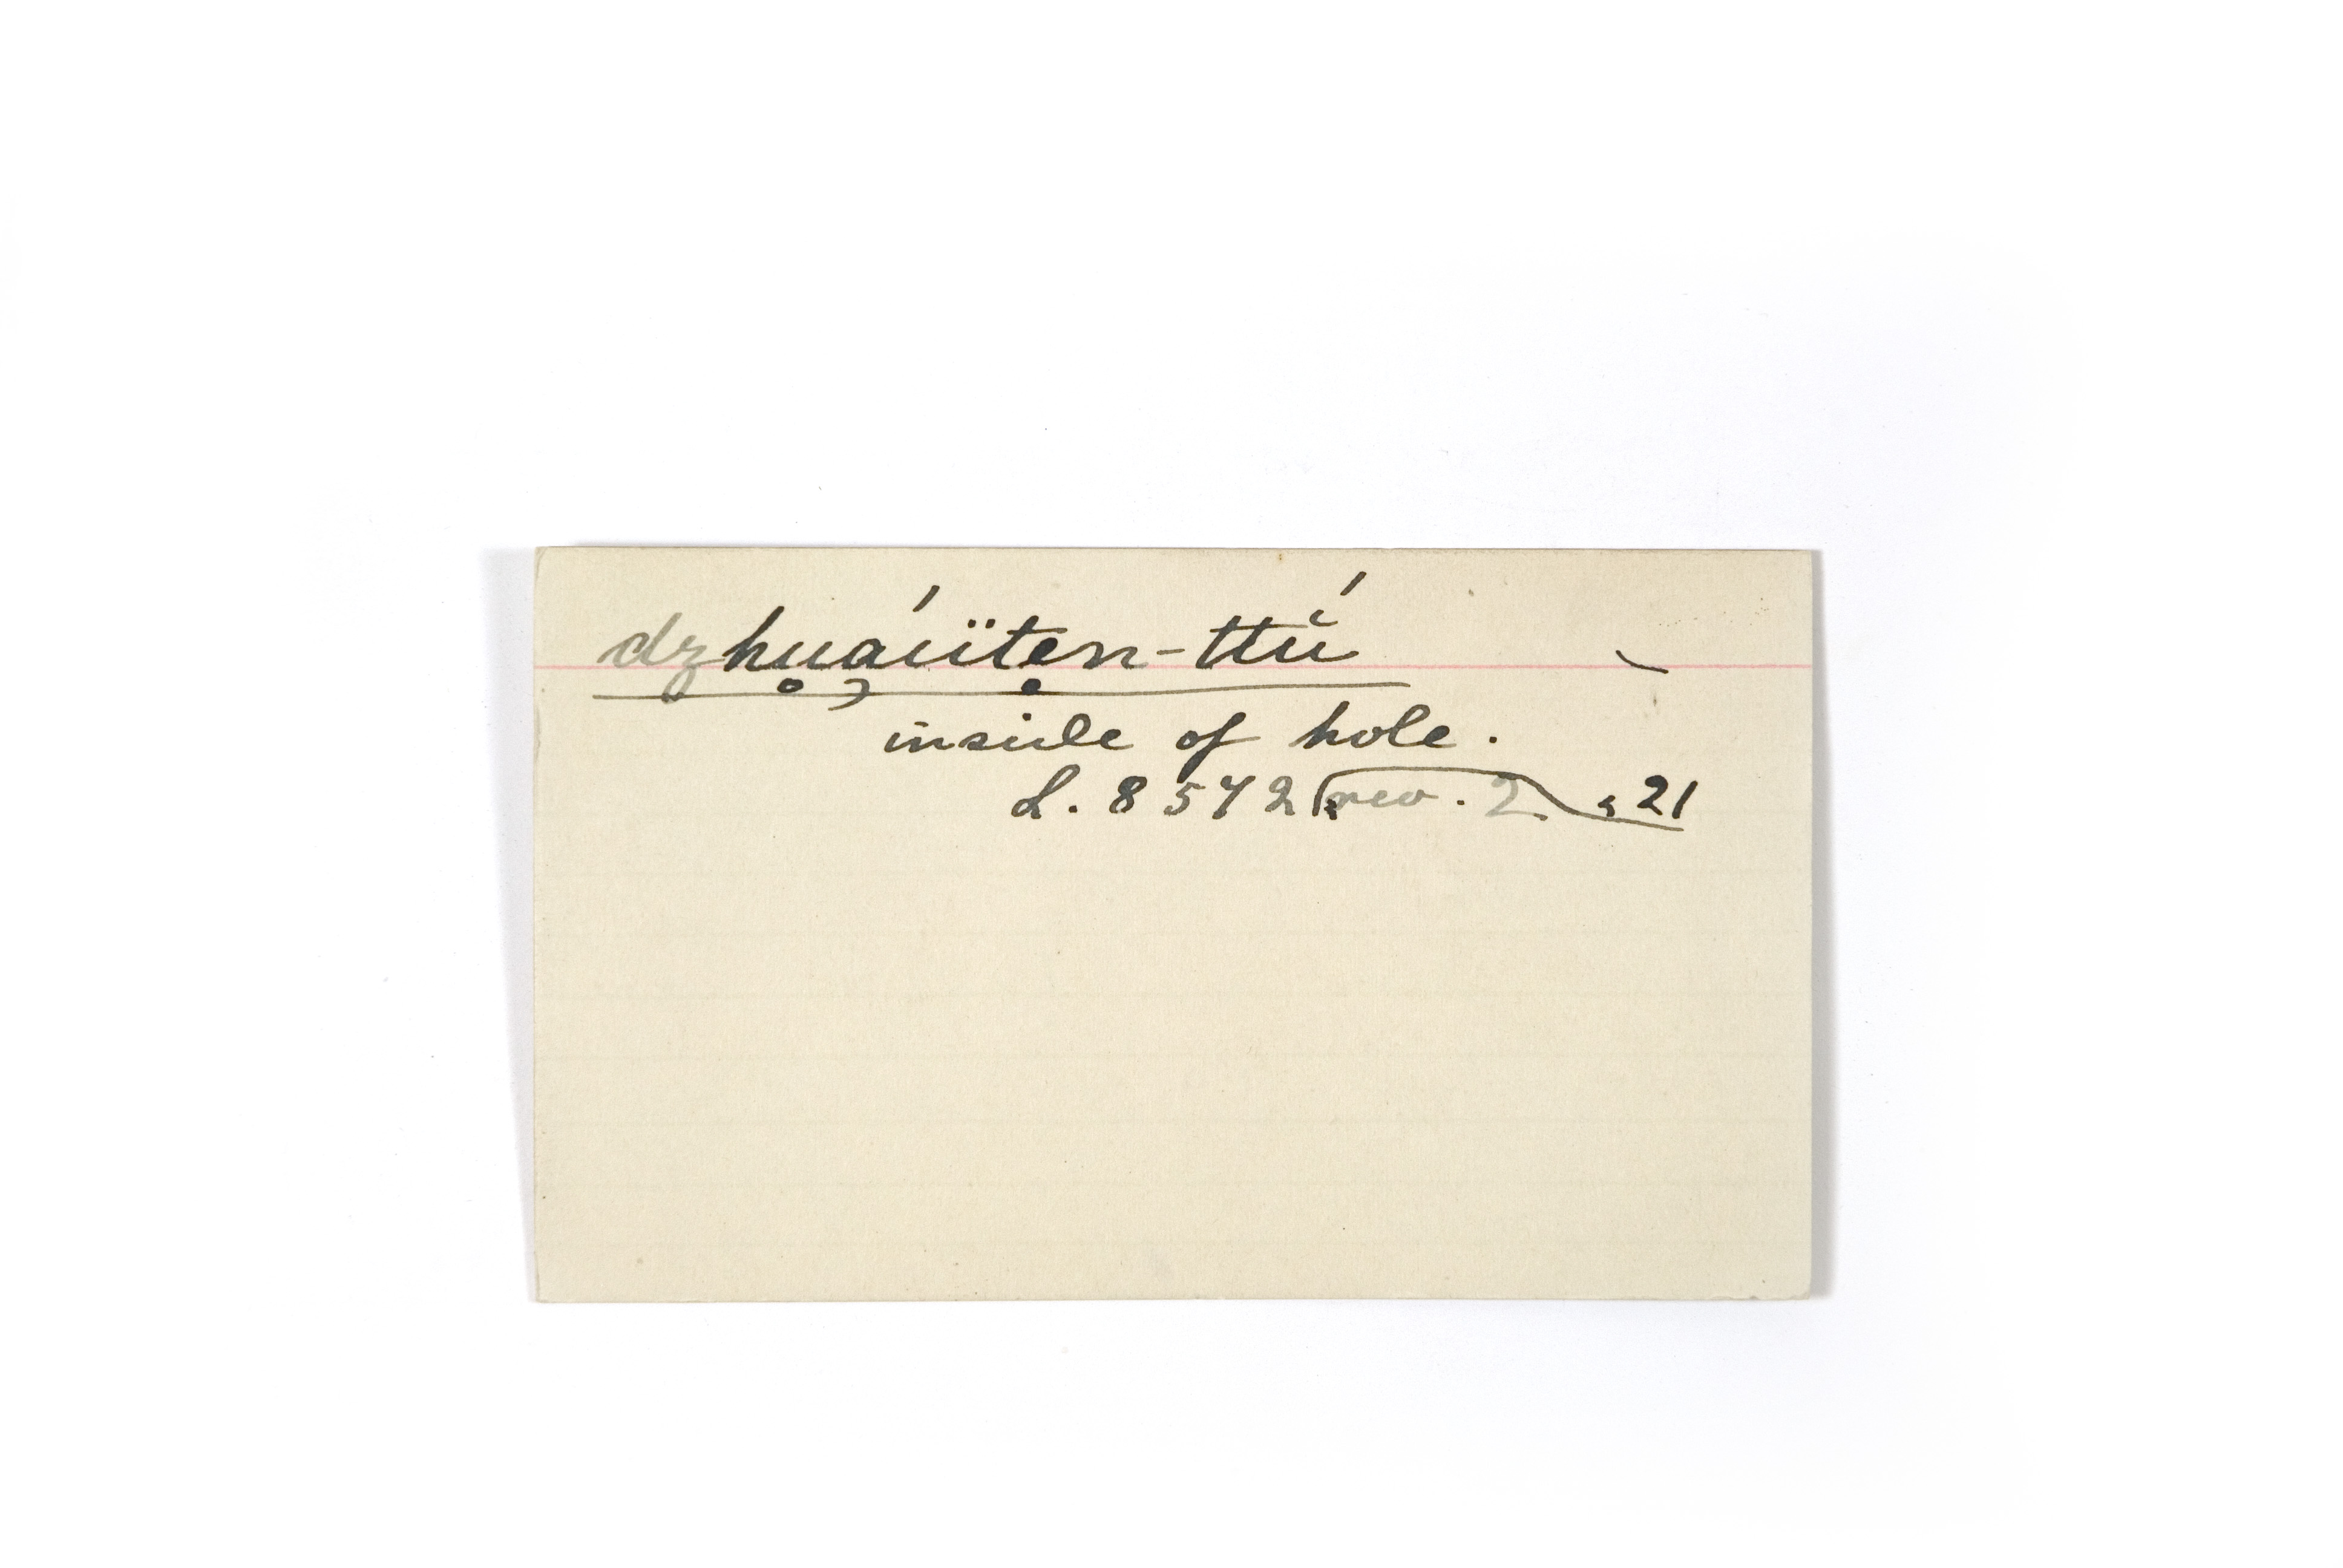 dzhu̥ą́ïten-ttú
inside of hole.
L. 8572 rev. 2. 21